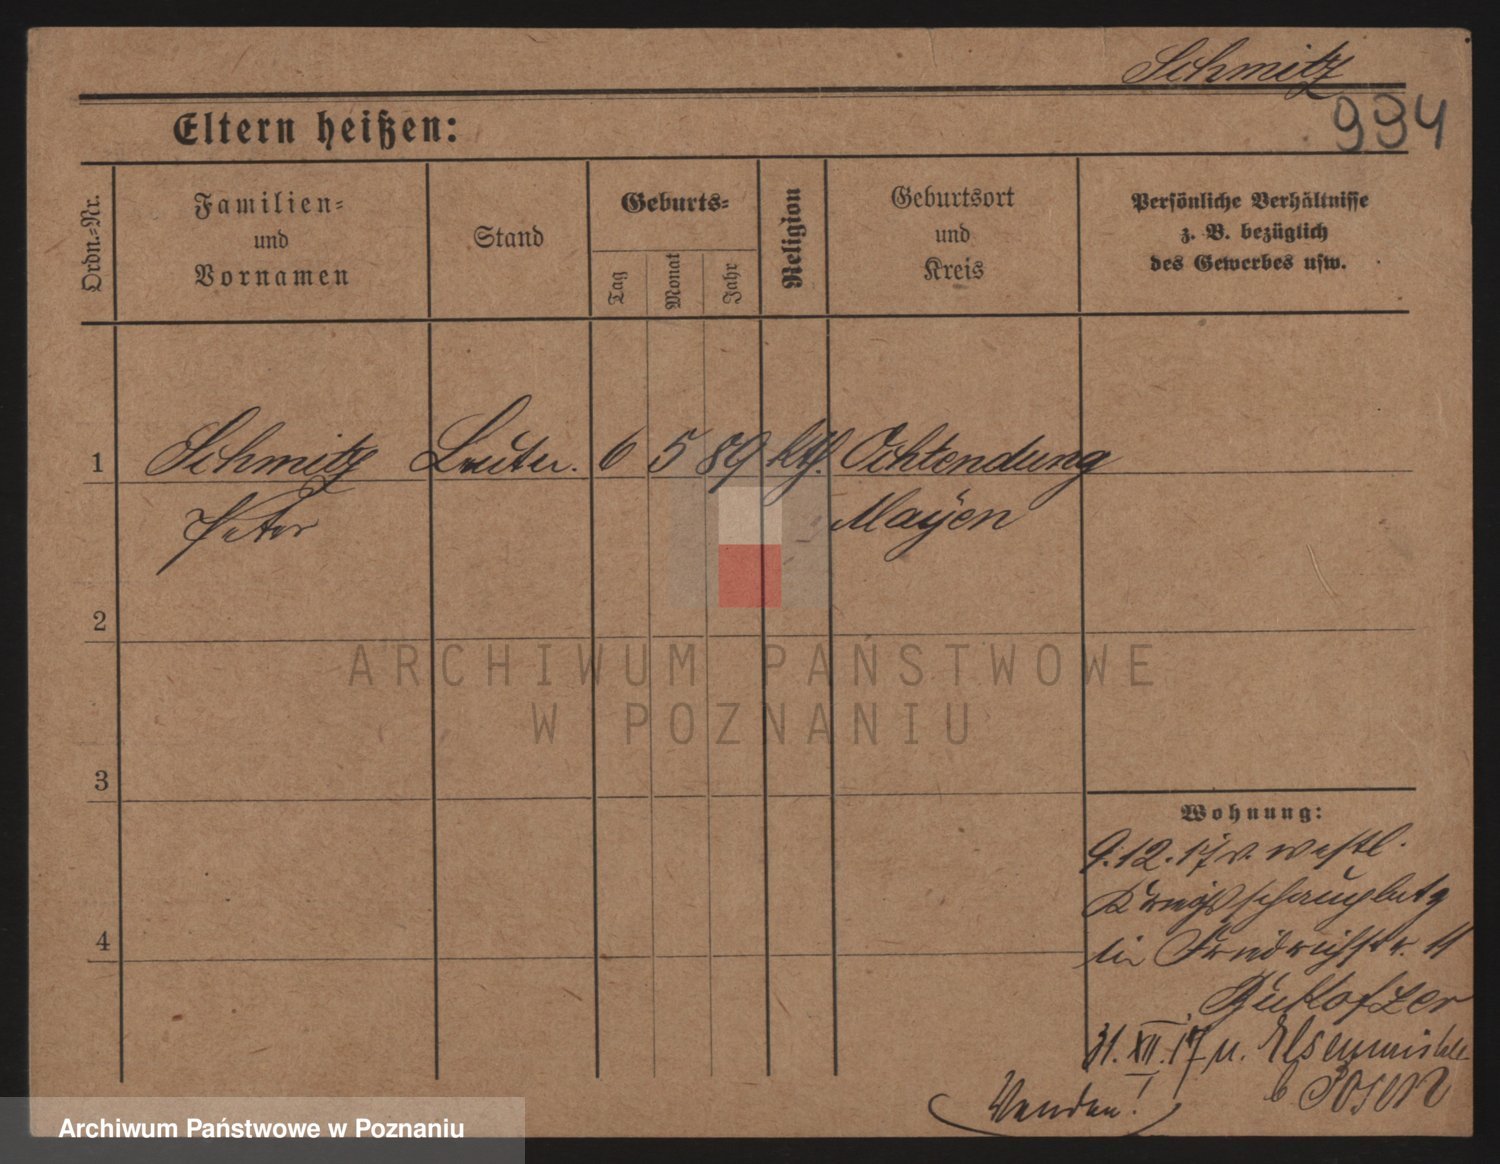 Schmitz
994
Eltern heißen:
Ordn.-Nr.
Familien-
und
Vornamen
Stand
Geburts-
Tag
Monat
Jahr
Religion
Geburtsort
und
Kreis
Persönliche Verhältnisse
z. B. bezüglich
des Gewerbes usw.
1 Schmitz Leutn. 6 5 89 kth. Ochtendung
Peter Mayen
2
ARCHIWUM PAŃSTWOWE
W POZNANIU
3
4
Wohnung:
9.12.17 v. westl.
Kriegsschauplatz
in Friedrichstr. 11
31.XII.17 n. Elsenmühle
b Posen
Wenden!
Archiwum Państwowe w Poznaniu